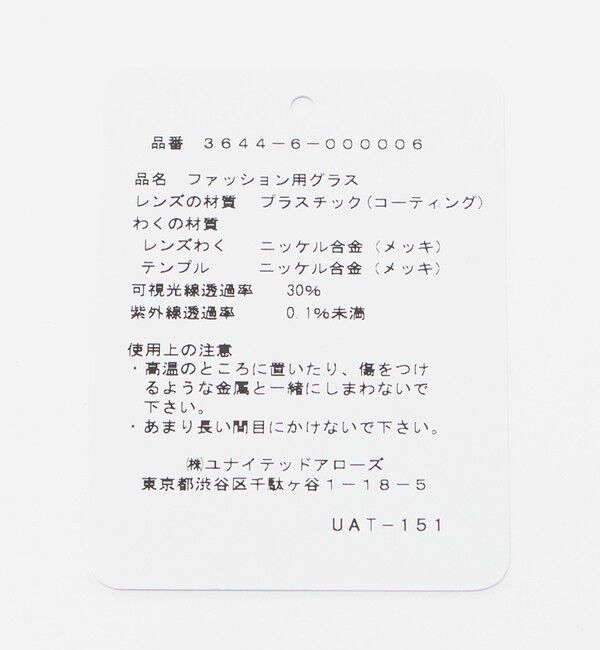 品番 3644-6-000006
品名 ファッション用グラス
レンズの材質 プラスチック(コーティング)
わくの材質
レンズわく ニッケル合金(メッキ)
テンプル ニッケル合金(メッキ)
可視光線透過率 30%
紫外線透過率 0.1%未満
使用上の注意
・高温のところに置いたり、傷をつけ
るような金属と一緒にしまわないで
下さい。
・あまり長い間目にかけないで下さい。
㈱ユナイテッドアローズ
東京都渋谷区千駄ヶ谷1-18-5
UAT-151